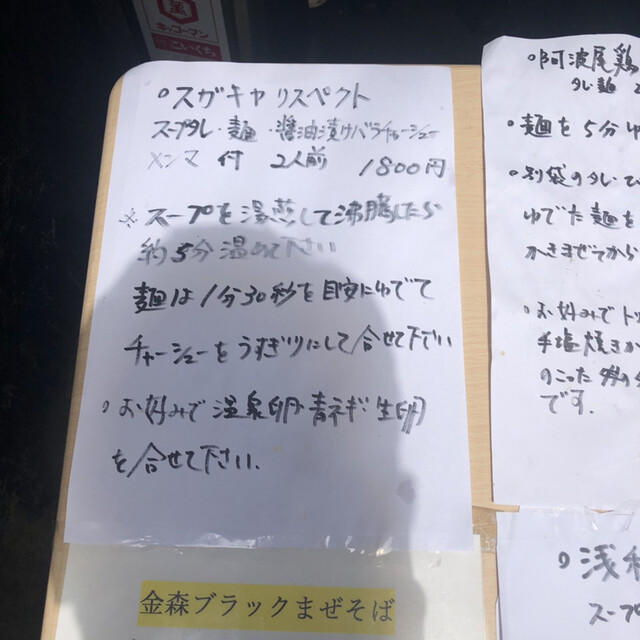 キッコーマン
こいくち
○スガキヤリスペクト
スープタレ・麺・醬油漬けバラチャーシュー
メンマ 付 2人前 1800円
※スープを湯煎して沸騰したら
約5分温めて下さい
麺は1分30秒を目安にゆでて
チャーシューをうすぎりにして合せて下さい
○お好みで温泉卵・青ネギ・生卵
を合せて下さい.
金森ブラックまぜそば
○阿波尾鶏
タレ 麺 2
○麺を5分ゆ
○別袋のタレ・ひ
ゆでた麺を
かきまぜてから
○お好みでトッ
手塩焼き
のこった
です.
○浅
スープ